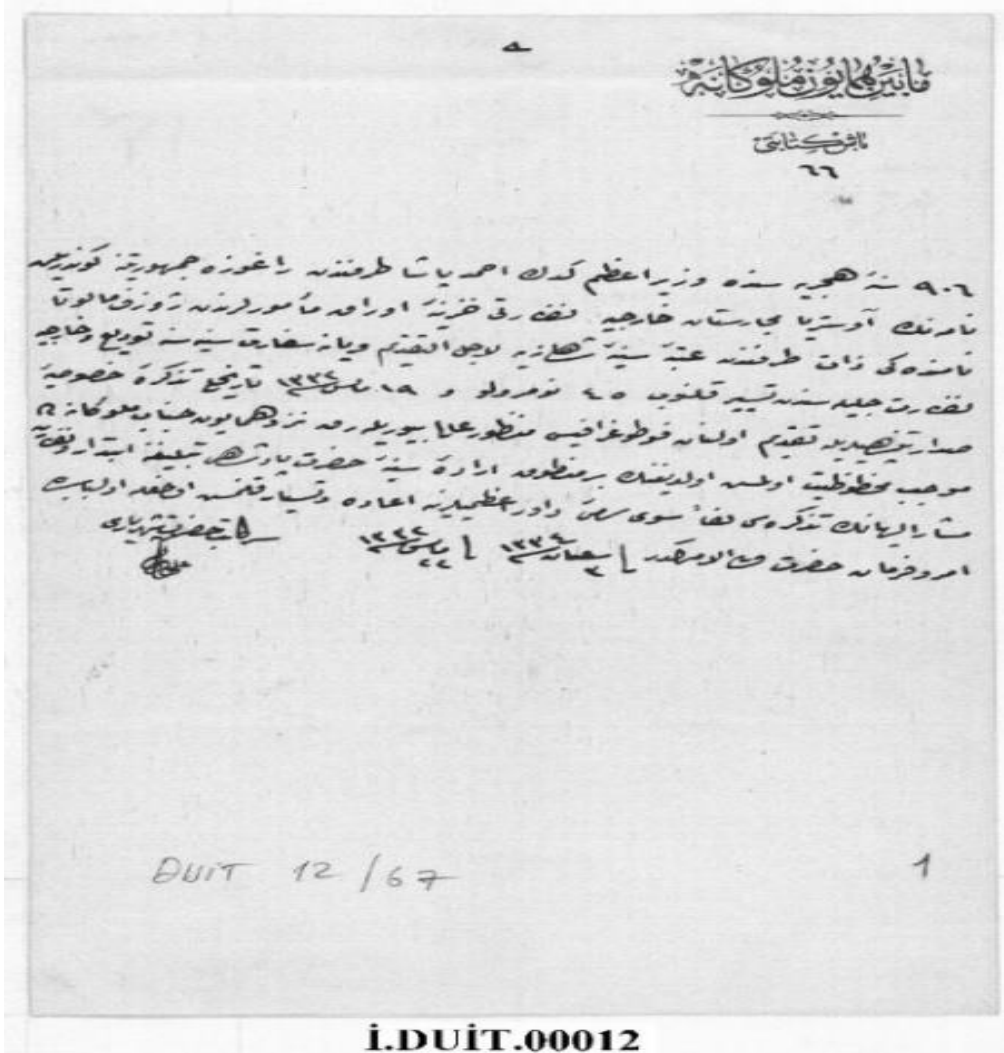 ه
مابين همايون ملوكانه
باش كتابتى
٦٦
٩٠٦ سنهٔ هجريه سنده وزير اعظم كدك احمد پاشا طرفندن راغوزه جمهوريتنه كوندريلن
نامه‌نك آوستريا مجارستان خارجيه نظارتى خزينهٔ اوراق مأمورلرندن
نامنده كى ذات طرفندن عتبهٔ سنيهٔ شاهانه‌يه لاجل التقديم ويانه سفارت سنيه سنه توديع وخارجيه
نظارت جليله سندن تسيير قلنوب ٤٥ نومرولو و ١٩ مارت ١٣٣٢ تاريخلى تذكرهٔ خصوصيهٔ
صدارتپناهيله تقديم اولنان فوطوغرافيسى منظور عالى بيوريلارق نزد همايون جناب ملوكانه‌ده
موجب محظوظيت اولمش اولديغنك بر منطوق ارادهٔ سنيهٔ حضرت پادشاهى تبليغنه ابتدار و نظارت
مشار اليهانك تذكره‌سى لفاً سوى سامئ داور اعظميلرينه اعاده و تسيار قلنمش اولمغله اولبابده
امر و فرمان حضرت من له الامركدر فى ٣ شعبان ١٣٣٤ فى ٢٢ مارس ١٣٣٢
سركاتب حضرت شهريارى
DUIT 12/67
1
İ.DUİT.00012